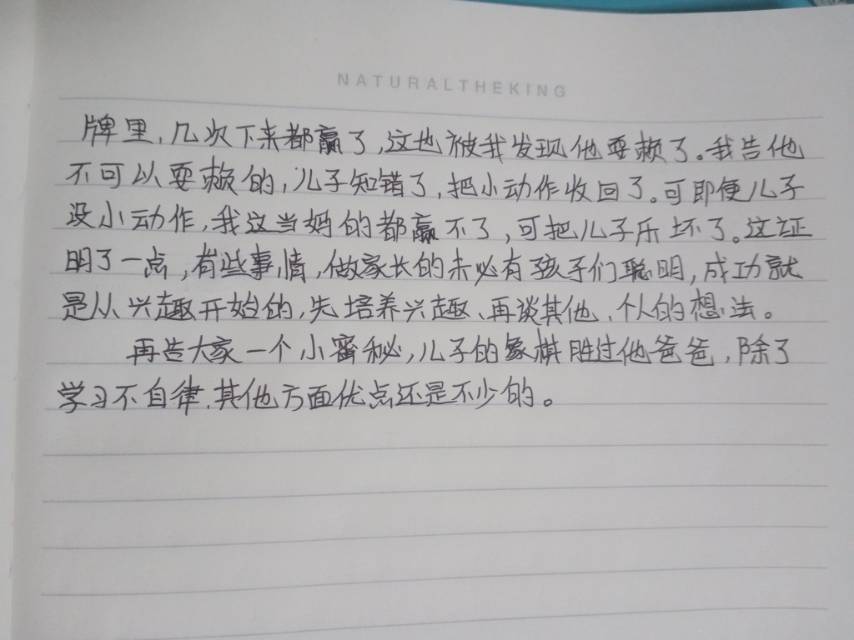 NATURALTHEKING
牌里,几次下来都赢了,这也被我发现他耍赖了。我告他
不可以耍赖的,儿子知错了,把小动作收回了。可即便儿子
没小动作,我这当妈的都赢不了,可把儿子乐坏了。这证
明了一点,有些事情,做家长的未必有孩子们聪明,成功就
是从兴趣开始的,先培养兴趣、再谈其他、个人的想法。
再告大家一个小密秘,儿子的象棋胜过他爸爸,除了
学习不自律,其他方面优点还是不少的。